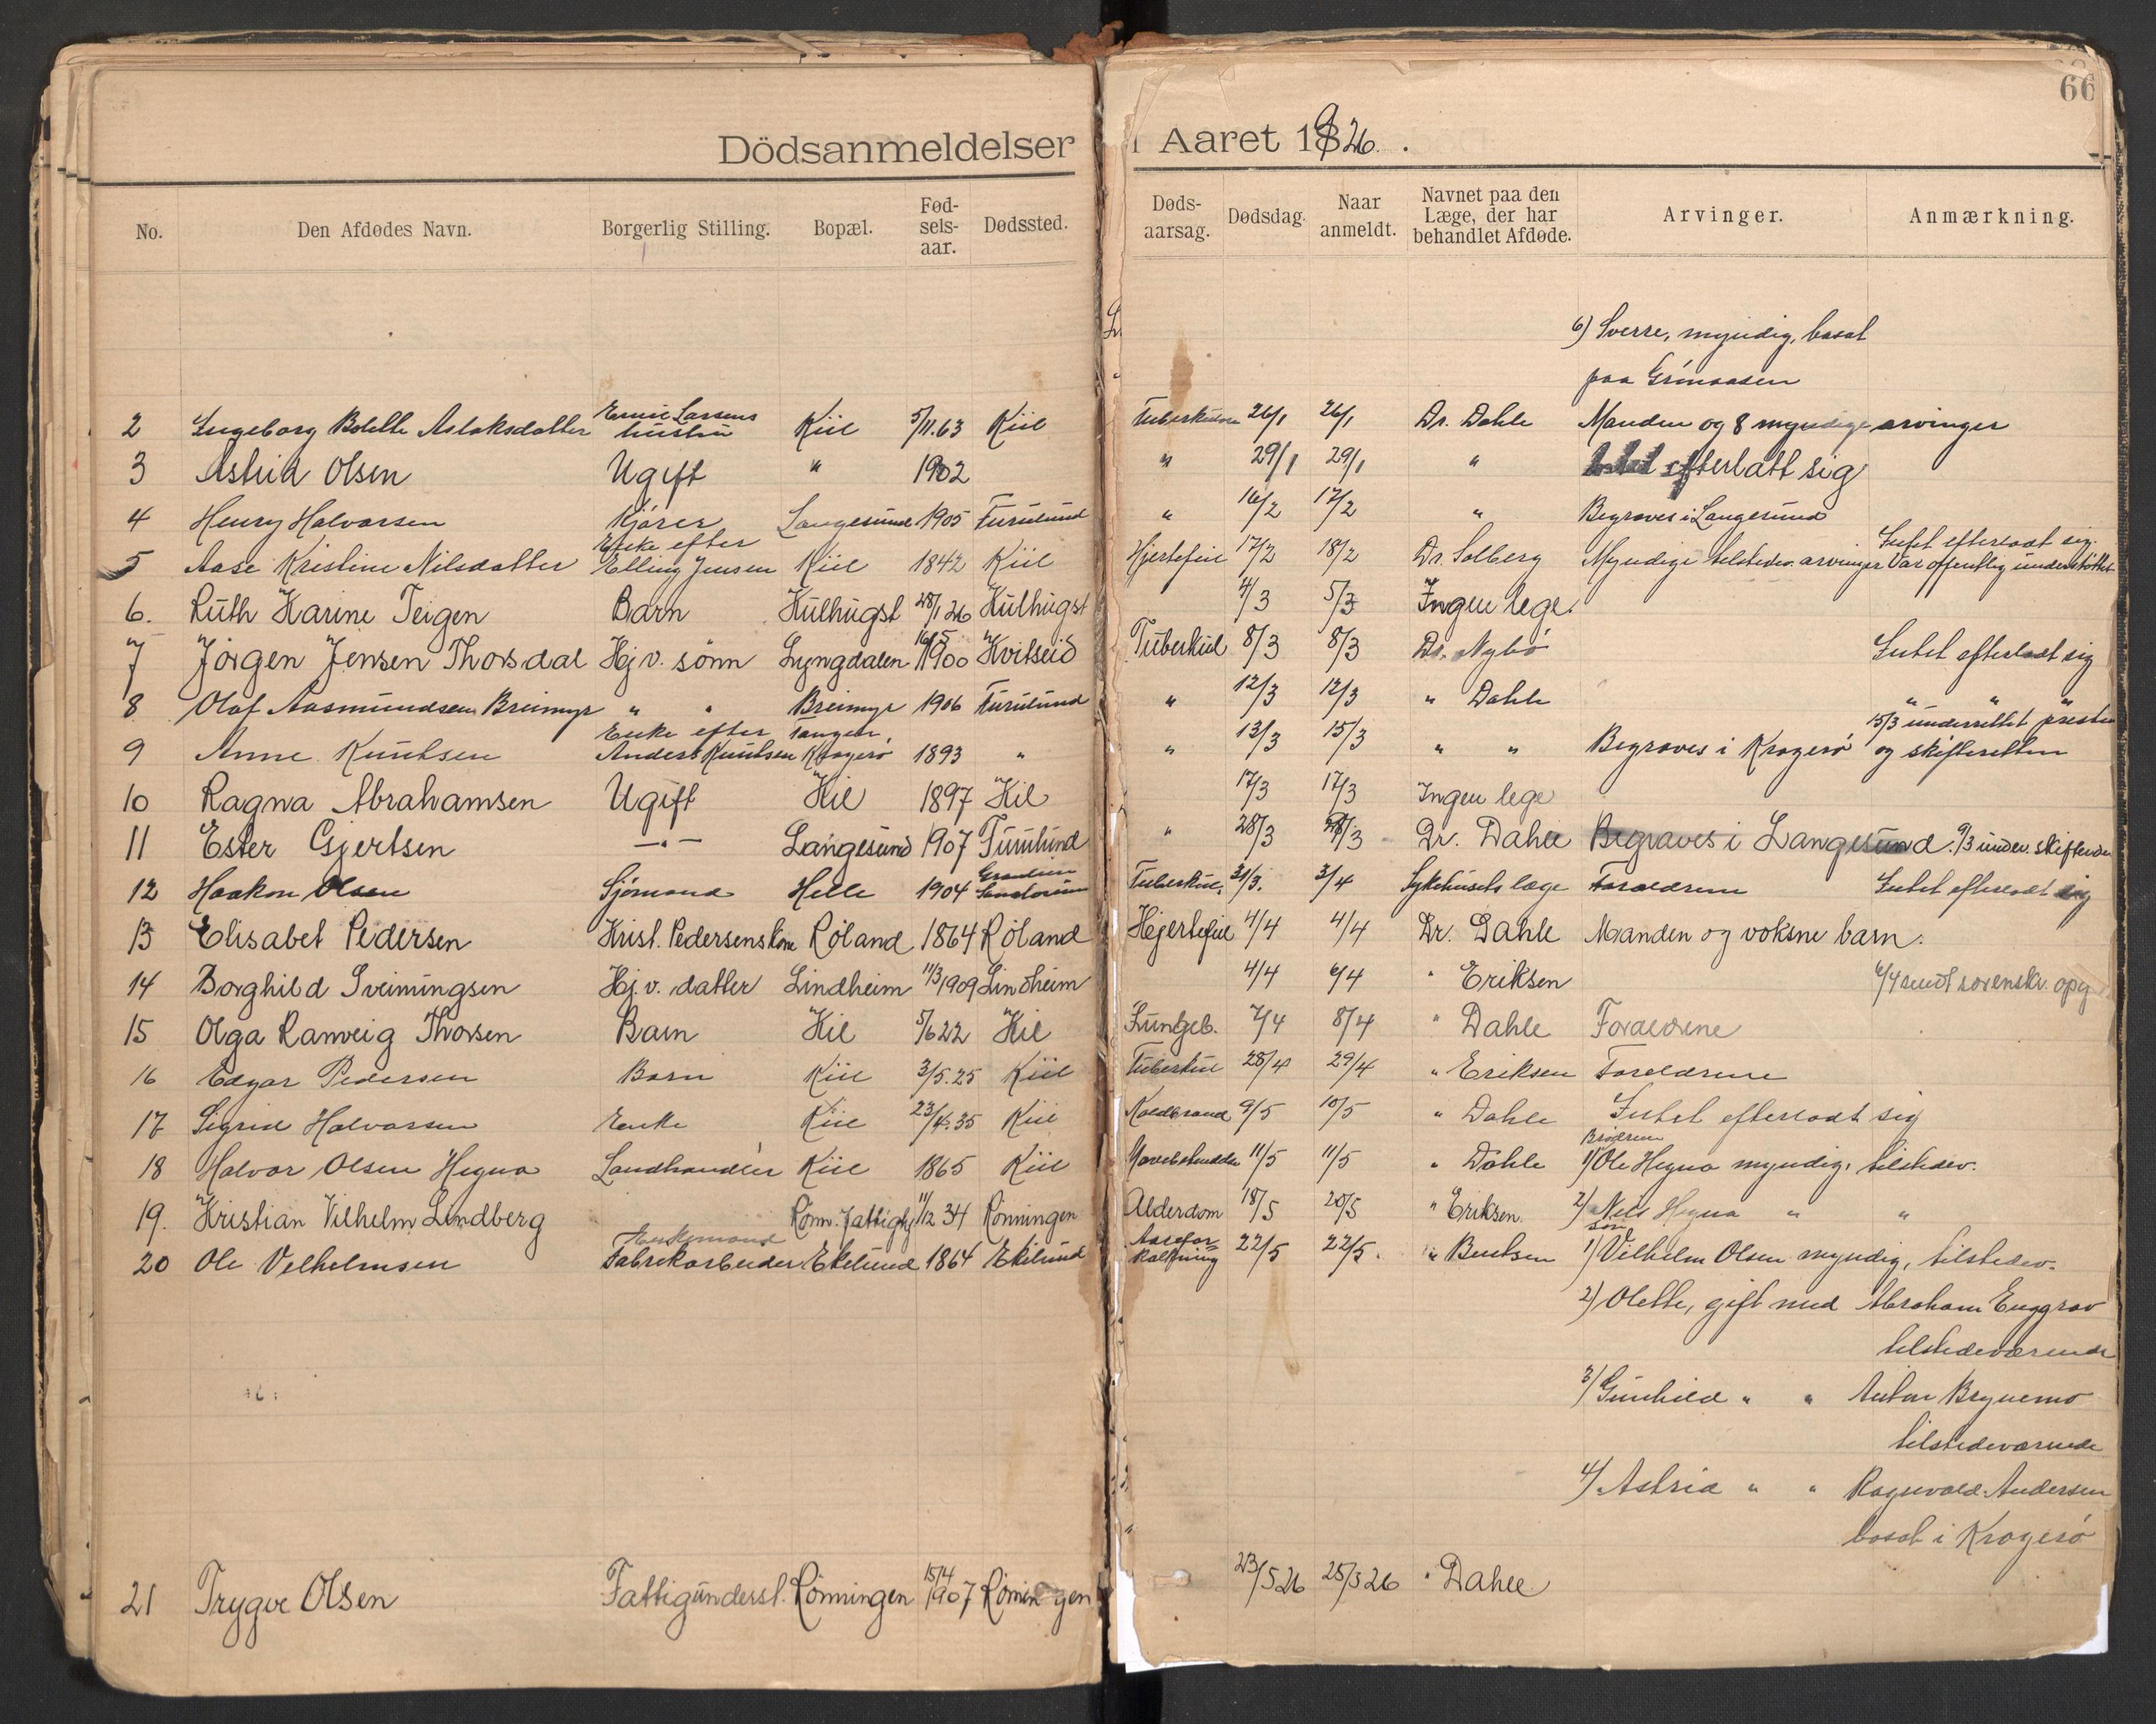 66
Dödsanmeldelser i Aaret 1926.
No. Den Afdødes Navn. Borgerlig Stilling. Bopæl. Fødselsaar. Dødssted. Dødsaarsag. Dødsdag. Naar anmeldt. Navnet paa den Læge, der har behandlet Afdøde. Arvinger. Anmærkning.
6) Sverre, myndig, bosat
paa Grimaasen
2 Ingeborg Bolette Aslaksdatter Larsens hustru Kiil 5/11.63 Kiil Tuberkulose 26/1 26/1 Dr. Dahle Manden og 8 myndige arvinger
3 Astrid Olsen Ugift " 1902 " 29/1 29/1 " efterlatt sig
4 Henry Halvorsen Kjører Langesund 1905 Furulund " 16/2 17/2 " Begraves i Langesund
5 Aase Kristine Nilsdatter Enke efter Elling Jensen Kiil 1842 Kiil Hjertefeil 17/2 18/2 Dr. Solberg Myndige tilstedev. arvinger Intet efterladt sig. Var offentlig understøttet
6. Ruth Karine Teigen Barn Hulhugst 28/1 26 Hulhugst 4/3 5/3 Ingen lege.
7 Jörgen Jensen Thorsdal Hj. v. sönn Lyngdalen 1900 Kvitseid Tuberkul 8/3 8/3 Dr. Nybö Intet efterladt sig
8 Olaf Aasmundsen Breimyr " " Breimyr 1906 Furulund " 12/3 12/3 " Dahle " " "
9 Anne Knutsen Enke efter Anders Knutsen Tangen, Kragerø 1893 " " 13/3 15/3 " " Begraves i Kragerø 15/3 underrettet presten og skifteretten
10 Ragna Abrahamsen Ugift Kil 1897 Kil 17/3 17/3 Ingen lege
11 Ester Gjertsen —"— Langesund 1907 Furulund " 28/3 28/3 Dr. Dahle Begraves i Langesund. 9/3 underr. skifter
12 Haakon Olsen Sjømand Helle 1904 Tuberkul. 31/3. 3/4 Sykehusets læge Foraldrene Intet efterladt sig
13 Elisabet Pedersen Krist. Pedersens kone Röland 1864 Röland Hejertefeil 4/4 4/4 Dr. Dahle Manden og voksne barn.
14 Borghild Sveinungsen Hj. v. datter Lindheim 11/3 1909 Lindheim 4/4 6/4 " Eriksen 6/4 sendt sorenskr. opg
15 Olga Ranveig Thorsen Barn Kil 5/6 22 Kil Lungeb. 7/4 8/4 " Dahle Foraldrene
16 Edgar Pedersen Barn Kiil 3/5.25 Kiil Tuberkul 28/4 29/4 " Eriksen Foreldrene
17 Sigrid Halvorsen Enke Kiil 23/4.35 Kiil Koldbrand 9/5 10/5 " Dahle Intet efterladt sig
18 Halvor Olsen Hegna Landhandler Kiil 1865 Kiil 11/5 11/5 " Dahle Brødrene 1) Ole Hegna myndig, tilstedev.
19. Kristian Vilhelm Lindberg Rönn. Fattiggj 11/12 34 Rönningen Alderdom 18/5 20/5 " Eriksen. 2) Nils Hegna " "
20 Ole Velhelmsen Enkemand Fabrikarbeider Ekelund 1864 Ekelund Aareforkalkning 22/5 22/5. " Bentsen søn 1) Vilhelm Olsen myndig, tilstedev.
2) Olette, gift med Abraham Enggrav
tilstedeværende
3) Gunhild " " Anton Brynemo
tilstedeværende
4) Astrid " " Ragnvald Andersen
bosat i Kragerø
21 Trygve Olsen Fattigunderst. Rönningen 15/4 1907 Rönningen 23/5 26 25/5 26 " Dahle